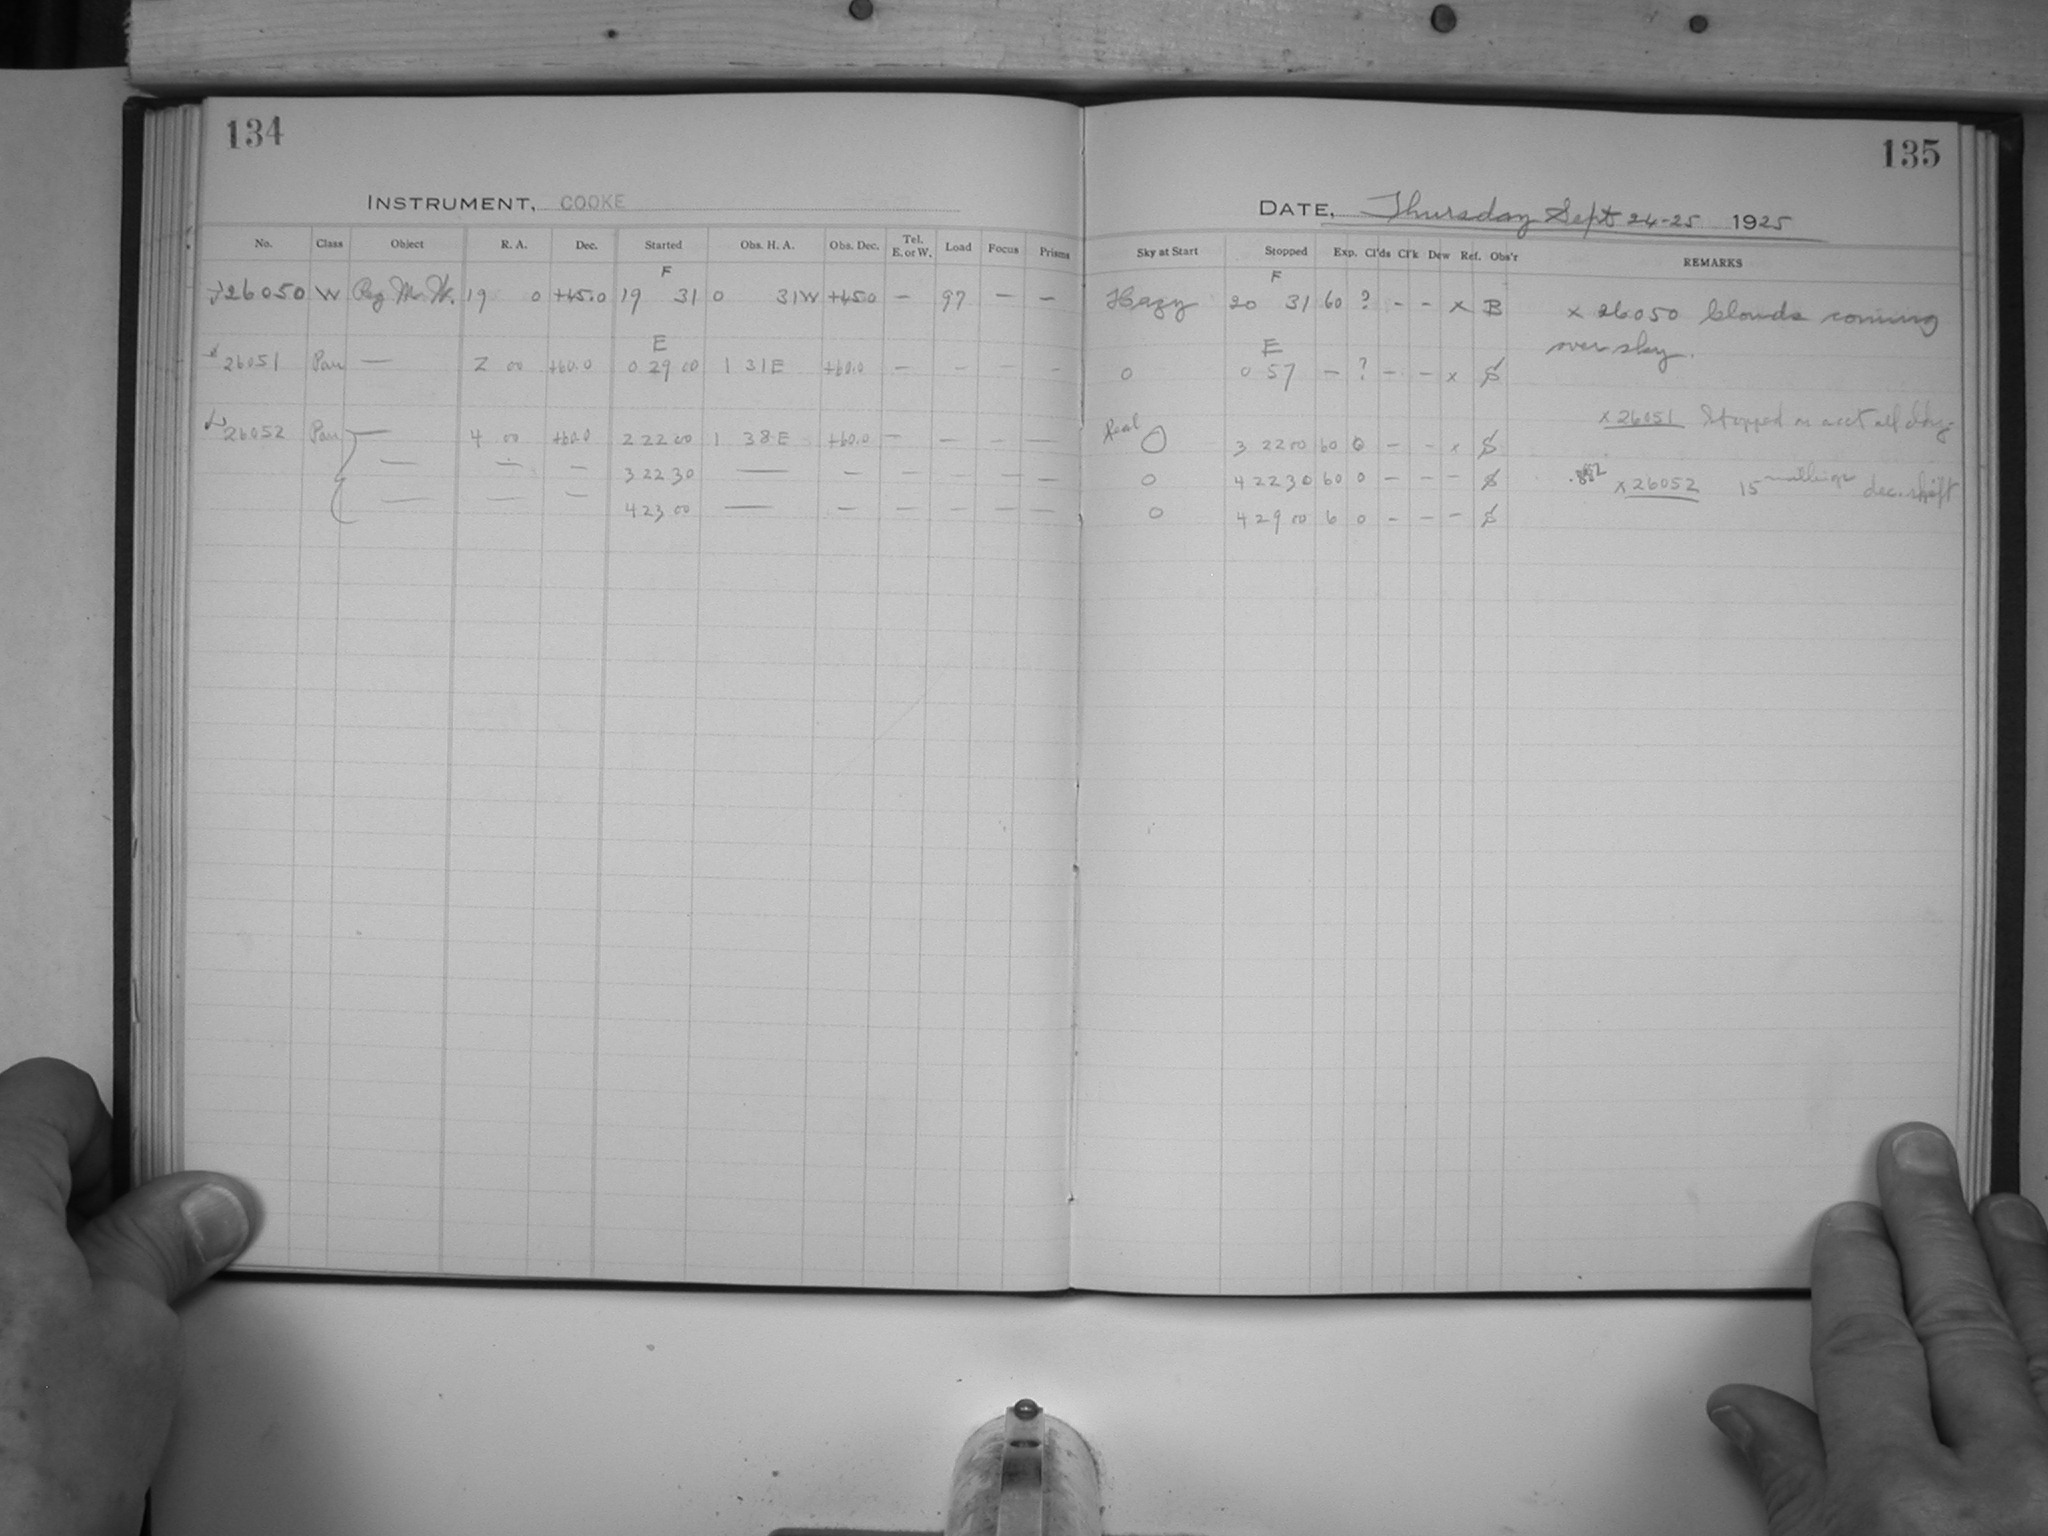 134
INSTRUMENT, COOKE
No. Class Object R. A. Dec. Started Obs. H. A. Obs. Dec. Tel. E. or W. Load Focus Prisms
F
26050 W Reg M.W. 19 0 +45.0 19 31 0 31W +45.0 — 97 — —
E
26051 Par — 2 00 +60.0 0 29 00 1 31E +60.0 — — — —
26052 Par — 4 00 +60.0 2 22 00 1 38E +60.0 — — — —
— — — 3 22 30 — — — — — —
— — — 4 23 00 — — — — — —
135
DATE, Thursday Sept 24-25 1925
Sky at Start Stopped Exp. Cl'ds Cl'k Dew Ref. Obs'r REMARKS
F
Hazy 20 31 60 ? - - x B x 26050 Clouds coming
over sky.
E
0 0 57 — ? - - x S
x 26051 Stopped on acct
0 3 22 00 60 0 - - x S
0 4 22 30 60 0 - - - S x 26052 15 dec. shift
0 4 29 00 6 0 - - - S